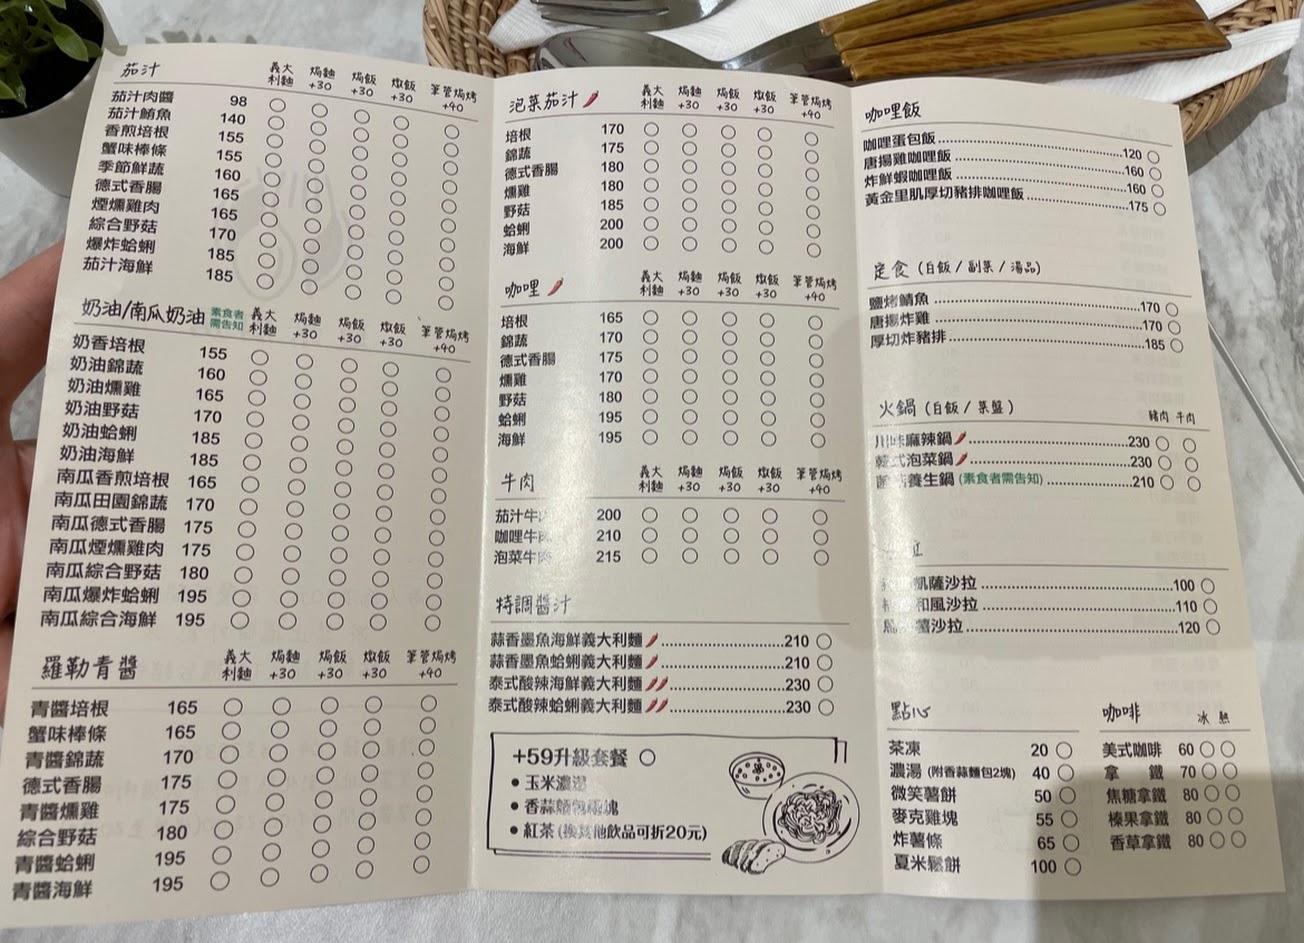 茄汁 義大利麵 焗麵+30 焗飯+30 燉飯+30 筆管焗烤+40
茄汁肉醬 98
茄汁鮪魚 140
香煎培根 155
蟹味棒條 155
季節鮮蔬 160
德式香腸 165
煙燻雞肉 165
綜合野菇 170
爆炸蛤蜊 185
茄汁海鮮 185
奶油/南瓜奶油 素食者需告知 義大利麵 焗麵+30 焗飯+30 燉飯+30 筆管焗烤+40
奶香培根 155
奶油錦蔬 160
奶油燻雞 165
奶油野菇 170
奶油蛤蜊 185
奶油海鮮 185
南瓜香煎培根 165
南瓜田園錦蔬 170
南瓜德式香腸 175
南瓜煙燻雞肉 175
南瓜綜合野菇 180
南瓜爆炸蛤蜊 195
南瓜綜合海鮮 195
羅勒青醬 義大利麵 焗麵+30 焗飯+30 燉飯+30 筆管焗烤+40
青醬培根 165
蟹味棒條 165
青醬錦蔬 170
德式香腸 175
青醬燻雞 175
綜合野菇 180
青醬蛤蜊 195
青醬海鮮 195
泡菜茄汁 義大利麵 焗麵+30 焗飯+30 燉飯+30 筆管焗烤+40
培根 170
錦蔬 175
德式香腸 180
燻雞 180
野菇 185
蛤蜊 200
海鮮 200
咖哩 義大利麵 焗麵+30 焗飯+30 燉飯+30 筆管焗烤+40
培根 165
錦蔬 170
德式香腸 175
燻雞 170
野菇 180
蛤蜊 195
海鮮 195
牛肉 義大利麵 焗麵+30 焗飯+30 燉飯+30 筆管焗烤+40
茄汁牛肉 200
咖哩牛肉 210
泡菜牛肉 215
特調醬汁
蒜香墨魚海鮮義大利麵 210
蒜香墨魚蛤蜊義大利麵 210
泰式酸辣海鮮義大利麵 230
泰式酸辣蛤蜊義大利麵 230
+59升級套餐
• 玉米濃湯
• 香蒜麵包兩塊
• 紅茶 (換其他飲品可折20元)
咖哩飯
咖哩蛋包飯 120
唐揚雞咖哩飯 160
炸鮮蝦咖哩飯 160
黃金里肌厚切豬排咖哩飯 175
定食 (白飯 / 副菜 / 湯品)
鹽烤鯖魚 170
唐揚炸雞 170
厚切炸豬排 185
火鍋 (白飯 / 菜盤) 豬肉 牛肉
川味麻辣鍋 230
韓式泡菜鍋 230
養生鍋 (素食者需告知) 210
凱薩沙拉 100
和風沙拉 110
沙拉 120
點心
茶凍 20
濃湯 (附香蒜麵包2塊) 40
微笑薯餅 50
麥克雞塊 55
炸薯條 65
夏米鬆餅 100
咖啡 冰 熱
美式咖啡 60
拿鐵 70
焦糖拿鐵 80
榛果拿鐵 80
香草拿鐵 80